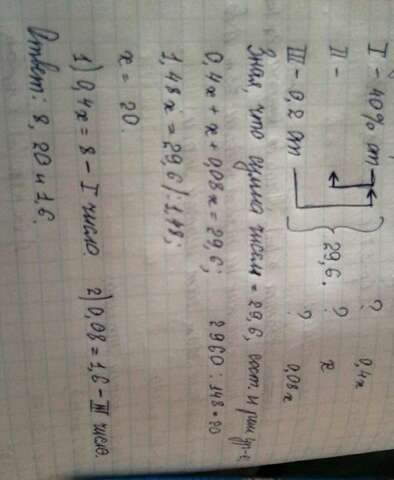 I – 40% от ? 0,4x
II – } 29,6. ? x
III – 0,2 от ? 0,08x
Зная, что сумма чисел = 29,6, сост. и реш. ур-е
0,4x + x + 0,08x = 29,6; 2960 : 148 = 20
1,48x = 29,6 | : 1,48;
x = 20.
1) 0,4x = 8 – I число 2) 0,08 = 1,6 – III число.
Ответ: 8, 20 и 1,6.